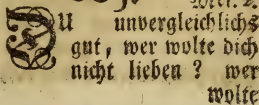 Du unvergleichlichs
gut, wer wolte dich
nicht lieben ? wer
wolte